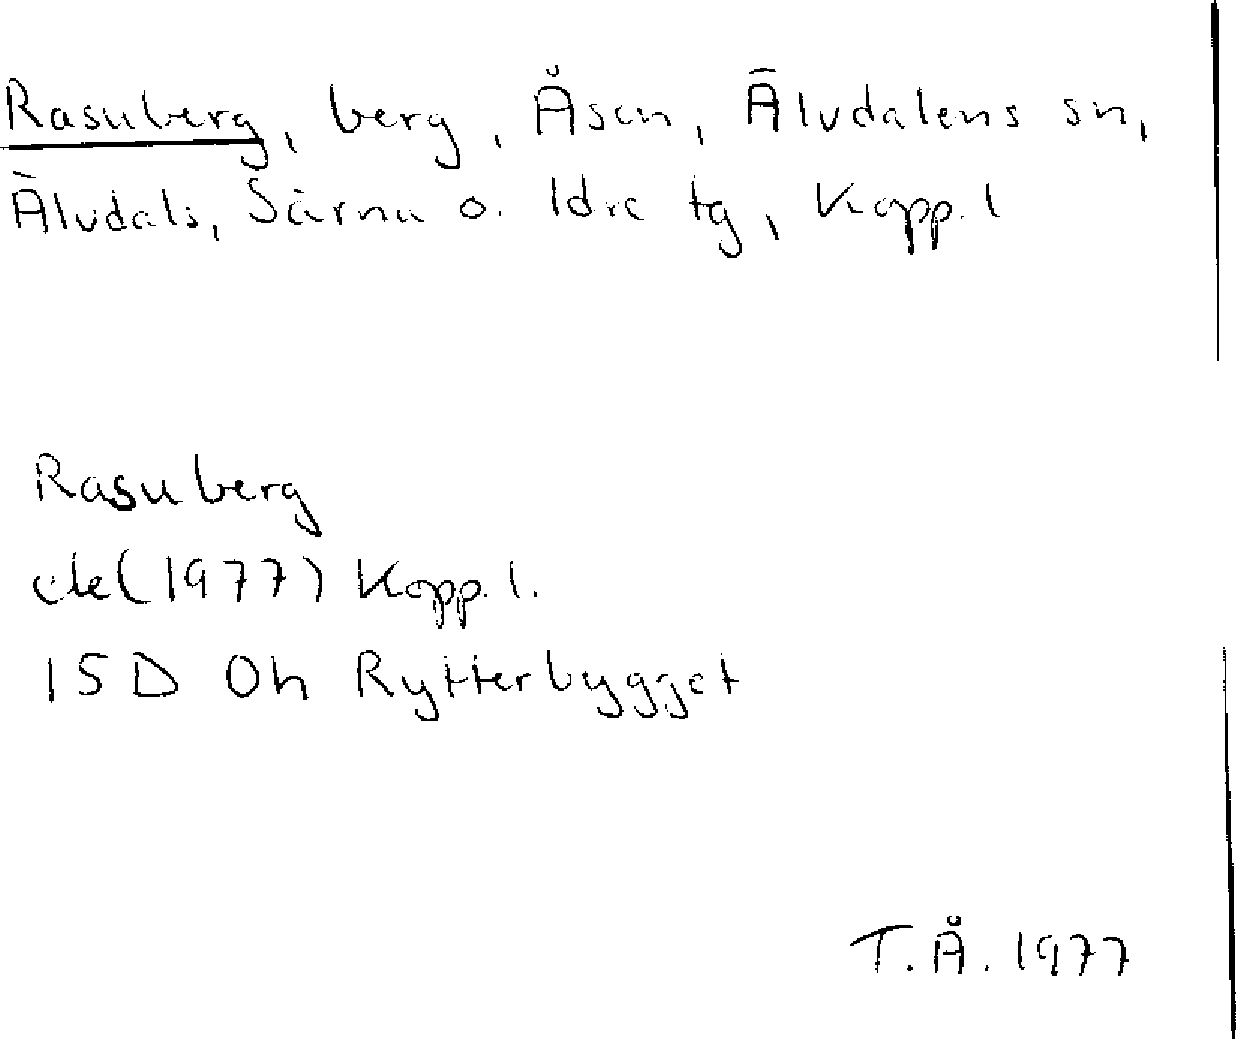 Rasuberg, berg, Åsen, Älvdalens sn,
Älvdals, Särna o. Idre tg, Kopp. l
Rasuberg
ek(1977) Kopp. l.
15D 0h Rytterbygget
T.Å. 1977